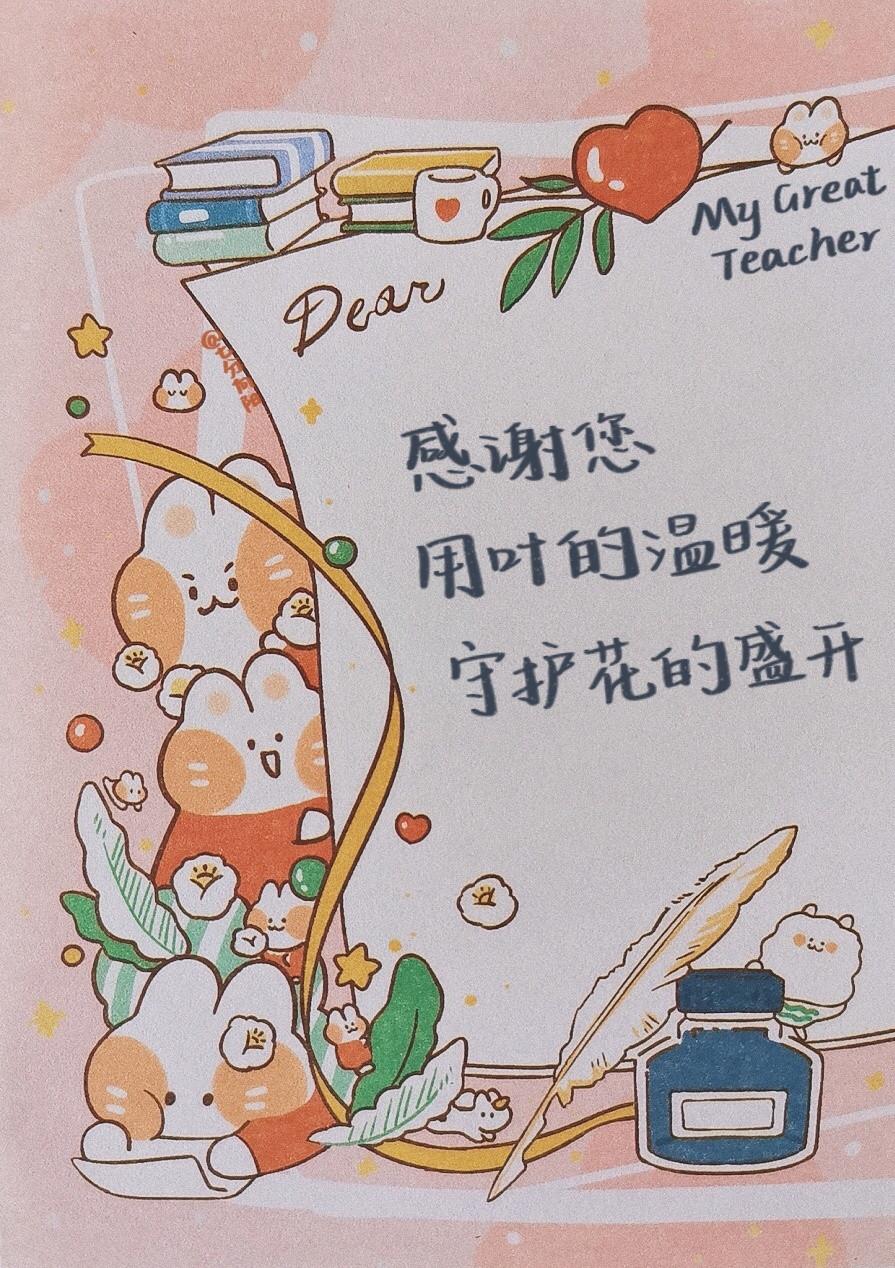 My Great
Teacher
Dear
@七分向阳
感谢您
用叶的温暖
守护花的盛开